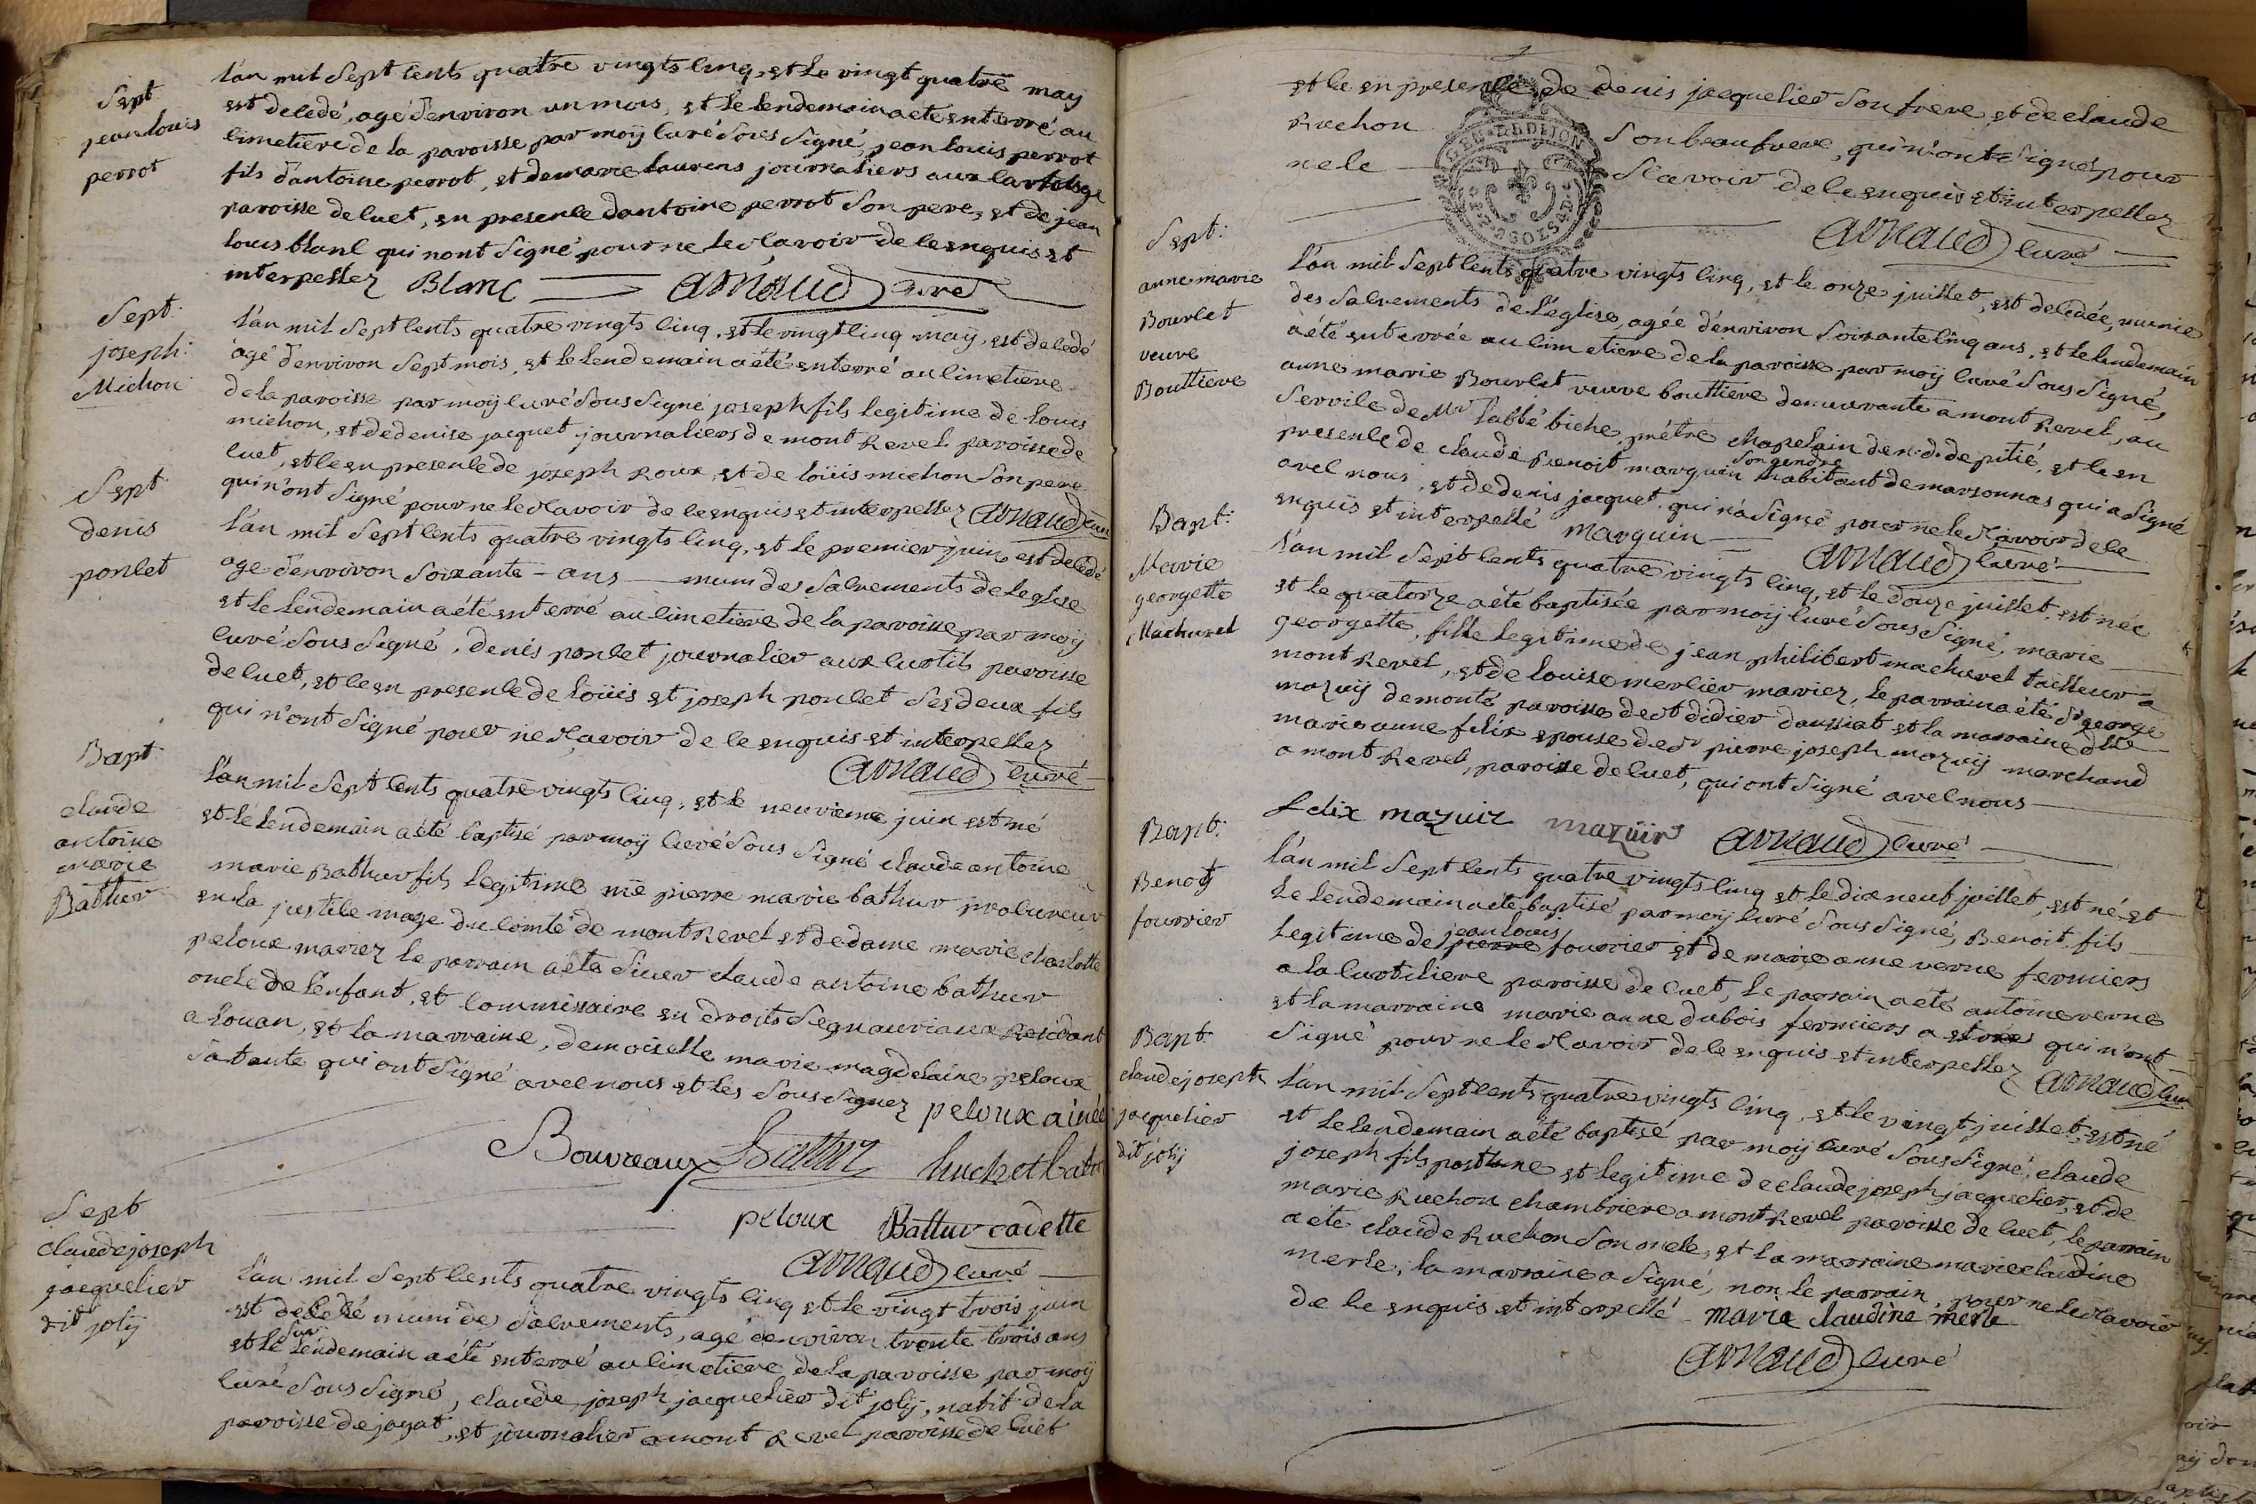 Sept
jean louis
perrot
l'an mil sept cents quatre vingts cinq, et le vingt quatre may
est decedé, agé d'environ un mois, et le lendemain a ete enterré au
cimetiere de la paroisse par moÿ curé sous signé, jean louis perrot
fils d'antoine perrot, et de marie laurens journaliers aux
paroisse de cuet, en presence d'antoine perrot son pere, et de jean
louis blanc qui n'ont signé pour ne le sçavoir de ce enquis et
interpellez Blanc arnaud curé
Sept:
joseph:
Michon
l'an mil sept cents quatre vingts cinq, et le vingt cinq maÿ, est decedé
agé d'environ sept mois, et le lendemain a été enterré au cimetiere
de la paroisse par moÿ curé sous signé joseph fils legitime de louis
michon, et de denise jacquet journaliers de mont Revel paroisse de
cuet, et ce en presence de joseph Roux, et de loüis michon son pere
qui n'ont signé pour ne le sçavoir de ce enquis et interpellez arnaud curé
Sept
denis
poncet
l'an mil sept cents quatre vingts cinq, et le premier juin est decedé
agé d'environ soixante - ans - muni des sacrements de leglise
et le lendemain a été enterré au cimetiere de la paroisse par moÿ
curé sous signé, denis poncet journalier aux curtils paroisse
de cuet, et ce en presence de loüis et joseph poncet ses deux fils
qui n'ont signé pour ne sçavoir de ce enquis et interpellez
arnaud curé
Bapt:
claude
antoine
marie
Bathur
l'an mil sept cents quatre vingts cinq, et le neuvieme juin est né
et le lendemain a été baptisé par moÿ curé sous signé claude antoine
marie Bathur fils legitime me pierre marie bathur procureur
en la justice mage du comté de mont Revel et de dame marie charlotte
peloux mariez le parrain a été sieur claude antoine bathur
oncle de l'enfant, et commissaire en droits segneuriaux Residant
a louan, et la marraine, demoiselle marie magdelaine peloux
sa tante qui ont signé avec nous et les sous signez peloux ainée
Bouvreaux Bathur huchet bathur
peloux Battur cadette
arnaud curé
Sept
claude joseph
jacquelier
dit jolÿ
l'an mil sept cents quatre vingts cinq et le vingt trois juin
est decedé muni des sacrements, agé denviron trente trois ans
et le sur lendemain a été enterré au cimetiere de la paroisse par moÿ
curé sous signé, claude joseph jacquelier dit jolÿ, natif de la
paroisse de jayat, et journalier a mont Revel paroisse de cuet
et ce en presence de denis jacquelier son frere, et de claude
Ruchon son beaufrere, qui n'ont signé pour
ne le sçavoir de ce enquis et interpellez
GEN. DE DIJON
arnaud curé
Sept:
anne marie
Bourlet
veuve
Bouttiere
l'an mil sept cents quatre vingts cinq, et le onze juillet, est decedée, munie
des sacrements de l'église, agée d'environ soixante cinq ans, et le lendemain
a été enterrée au cimetiere de la paroisse par moÿ curé sous signé,
anne marie Bourlet veuve bouttiere demeurante a mont Revel, au
service de Mr l'abbé biche, prêtre chapelain de n. d. de pitié, et ce en
presence de claude Benoit marquin son gendre habitant de marsonnas qui a signé
avec nous, et de denis jacquet, qui n'a signé pour ne le sçavoir de ce
enquis et interpellé marquin arnaud curé
Bapt:
Marie
georgette
Machuret
l'an mil sept cents quatre vingts cinq, et le douze juillet, est née
et le quatorze a été baptisée par moÿ curé sous signé, marie
georgette, fille legitime de jean philibert machuret tailleur a
mont Revel, et de louise merlier mariez, le parrain a été Sr george
mazuÿ de monté paroisse de st didier d'aussiat et la marraine dlle
marie anne felix epouse de sr pierre joseph mazuÿ marchand
a mont Revel, paroisse de cuet, qui ont signé avec nous
felix mazuir mazüir arnaud curé
Bapt:
Benoit
fourrier
l'an mil sept cents quatre vingts cinq et le dix neuf juillet, est né et
le lendemain a été baptisé par moÿ curé sous signé, Benoit fils
legitime de pierre jean louis fourrier et de marie anne verne fermiers
a la curtiliere paroisse de cuet, le parrain a été antoine verne
et la marraine marie anne dubois fermiers a etrez qui n'ont
signé pour ne le sçavoir de ce enquis et interpellez arnaud curé
Bapt
claude joseph
jacquelier
dit jolÿ
l'an mil sept cents quatre vingts cinq, et le vingt juillet, est né
et le lendemain a été baptisé par moÿ curé sous signé, claude
joseph fils postume et legitime de claude joseph jacquelier, et de
marie Ruchon chambriere a mont Revel paroisse de cuet, le parrain
a été claude Ruchon son oncle, et la marraine marie claudine
merle, la marraine a signé, non le parrain, pour ne le sçavoir
de ce enquis et interpellé marie claudine merle
arnaud curé